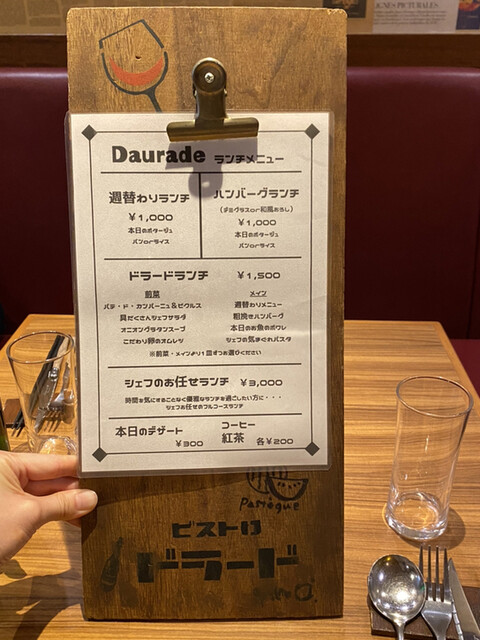 IGNES PICTURALES
Daurade ランチメニュー
週替わりランチ
￥1,000
本日のポタージュ
パンorライス
ハンバーグランチ
(デミグラスor和風おろし)
￥1,000
本日のポタージュ
パンorライス
ドラードランチ ￥1,500
前菜
パテ・ド・カンパーニュ&ピクルス
具だくさんシェフサラダ
オニオングラタンスープ
こだわり卵のオムレツ
メイン
週替わりメニュー
粗挽きハンバーグ
本日のお魚のポワレ
シェフの気まぐれパスタ
※前菜・メインより1皿ずつお選びください
シェフのお任せランチ ￥3,000
時間を気にすることなく優雅なランチを過ごしたい方に・・・
シェフお任せのフルコースランチ
本日のデザート
￥300
コーヒー
紅茶 各￥200
Pastèque
ビストロ
ドラード